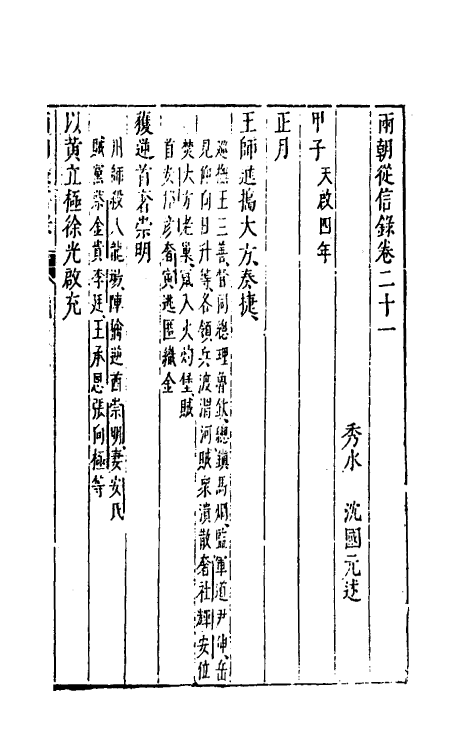 兩朝從信錄卷二十一
秀水 沈國元述
甲子 天啟四年
正月
王師進搗大方奏捷
巡撫王三善會同總理魯欽總鎮馬烱監軍道尹伸岳
見仰向日升等各領兵渡渭河賊眾潰散奢社輝安位
焚大方老巢竄入火灼堡賊
首安邦彥奢寅逃匿織金
獲逆首奢崇明
川師殺入龍塲陣擒逆酋崇明妻安氏
賊黨蔡金貴李廷王承恩張向極等
以黃立極徐光啟充